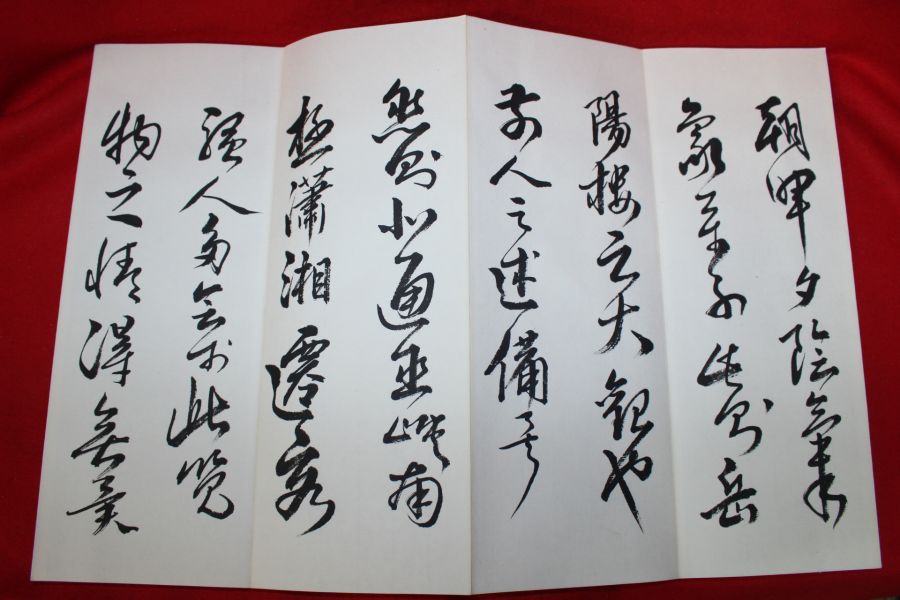 朝暉夕陰氣
象萬千此則岳
陽樓之大觀也
前人之述備矣
然則北通巫峽南
極瀟湘遷客
騷人多會於此覽
物之情得無異